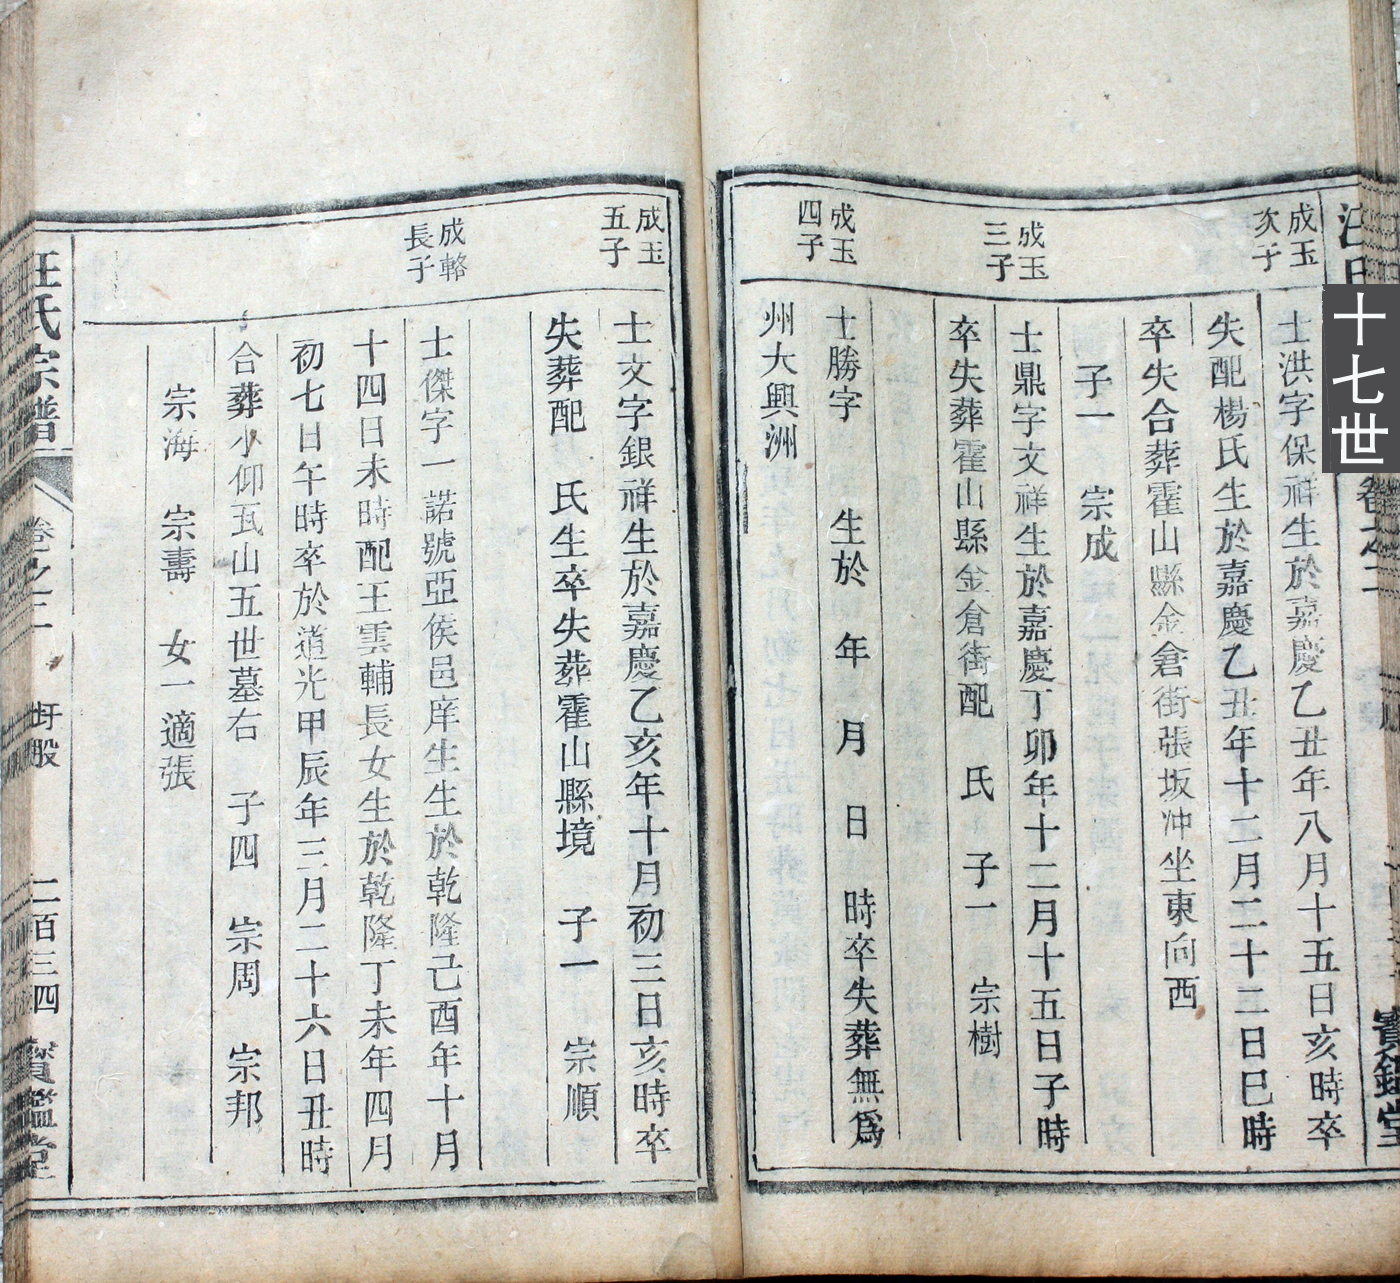 十七世
成玉
次子
士洪字保祥生於嘉慶乙丑年八月十五日亥時卒
失配楊氏生於嘉慶乙丑年十二月二十三日巳時
卒失合葬霍山縣金倉街張坂冲坐東向西
子一　宗成
成玉
三子
士鼎字文祥生於嘉慶丁卯年十二月十五日子時
卒失葬霍山縣金倉街配　氏　子一　宗樹
成玉
四子
士勝字　生於　年　月　日　時卒失葬無為
州大興洲
成玉
五子
士文字銀祥生於嘉慶乙亥年十月初三日亥時卒
失葬配　氏生卒失葬霍山縣境　子一　宗順
成輅
長子
士傑字一諾號亞侯邑庠生生於乾隆己酉年十月
十四日未時配王雲輔長女生於乾隆丁未年四月
初七日午時卒於道光甲辰年三月二十六日丑時
合葬小仰瓦山五世墓右　子四　宗周　宗邦
宗海　宗壽　女一適張
汪氏宗譜　卷之二　圩股　二百三四　寶鑑堂